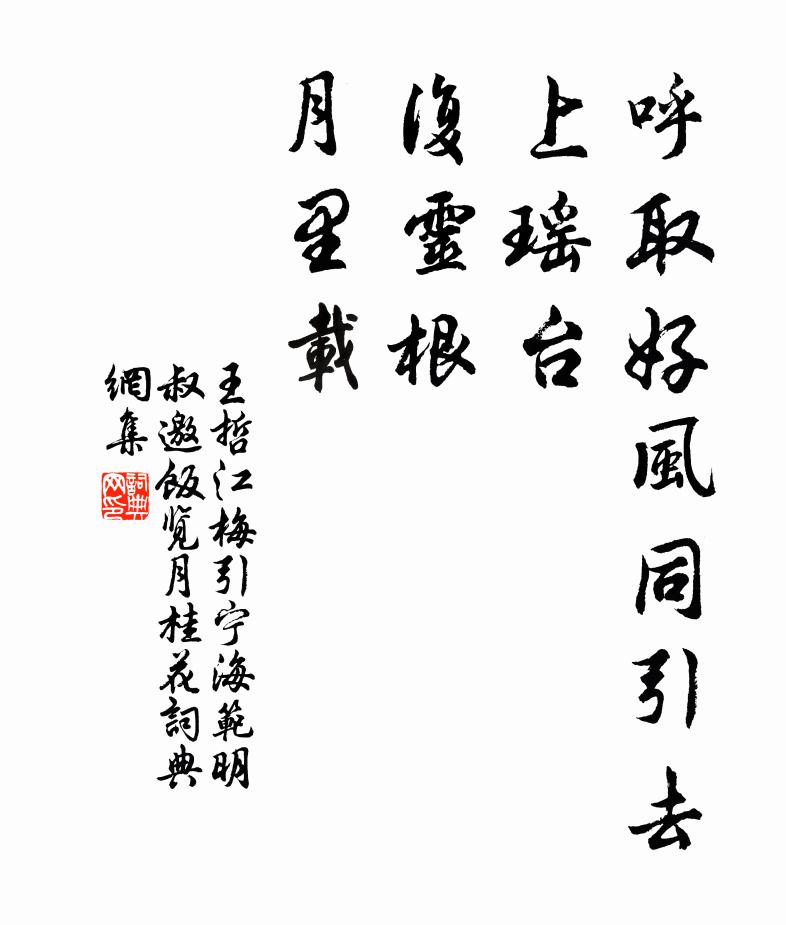 呼取好風同引去
上瑶台
復靈根
月里載
王哲江梅引宁海範明
叔邀飯览月桂花詞典
網集
詞典网印